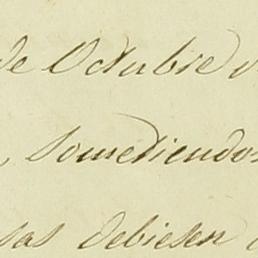 de Octubre d
, sometiendo
sas debiesen